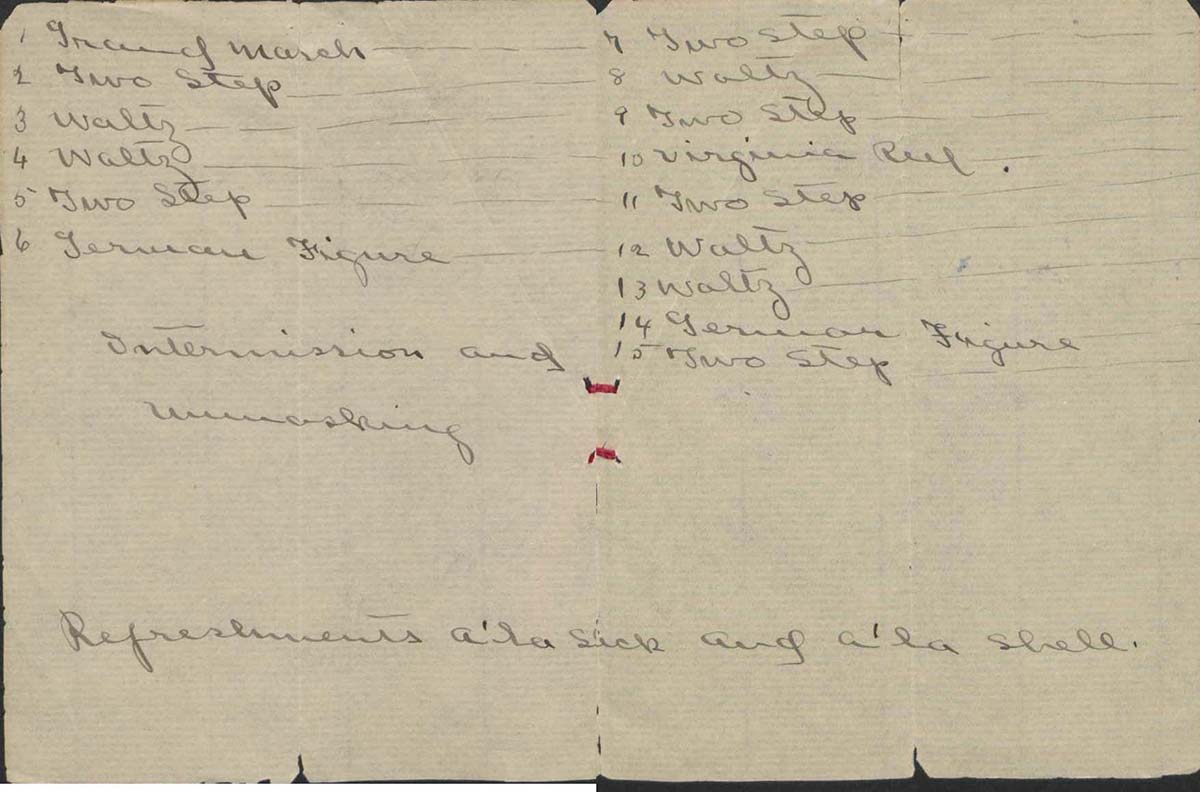 1 Grand March
2 Two Step
3 Waltz
4 Waltz
5 Two Step
6 German Figure
Intermission and
Unmasking
7 Two Step
8 Waltz
9 Two Step
10 Virginia Reel.
11 Two Step
12 Waltz
13 Waltz
14 German Figure
15 Two Step
Refreshments a'la Sick and a'la Shell.